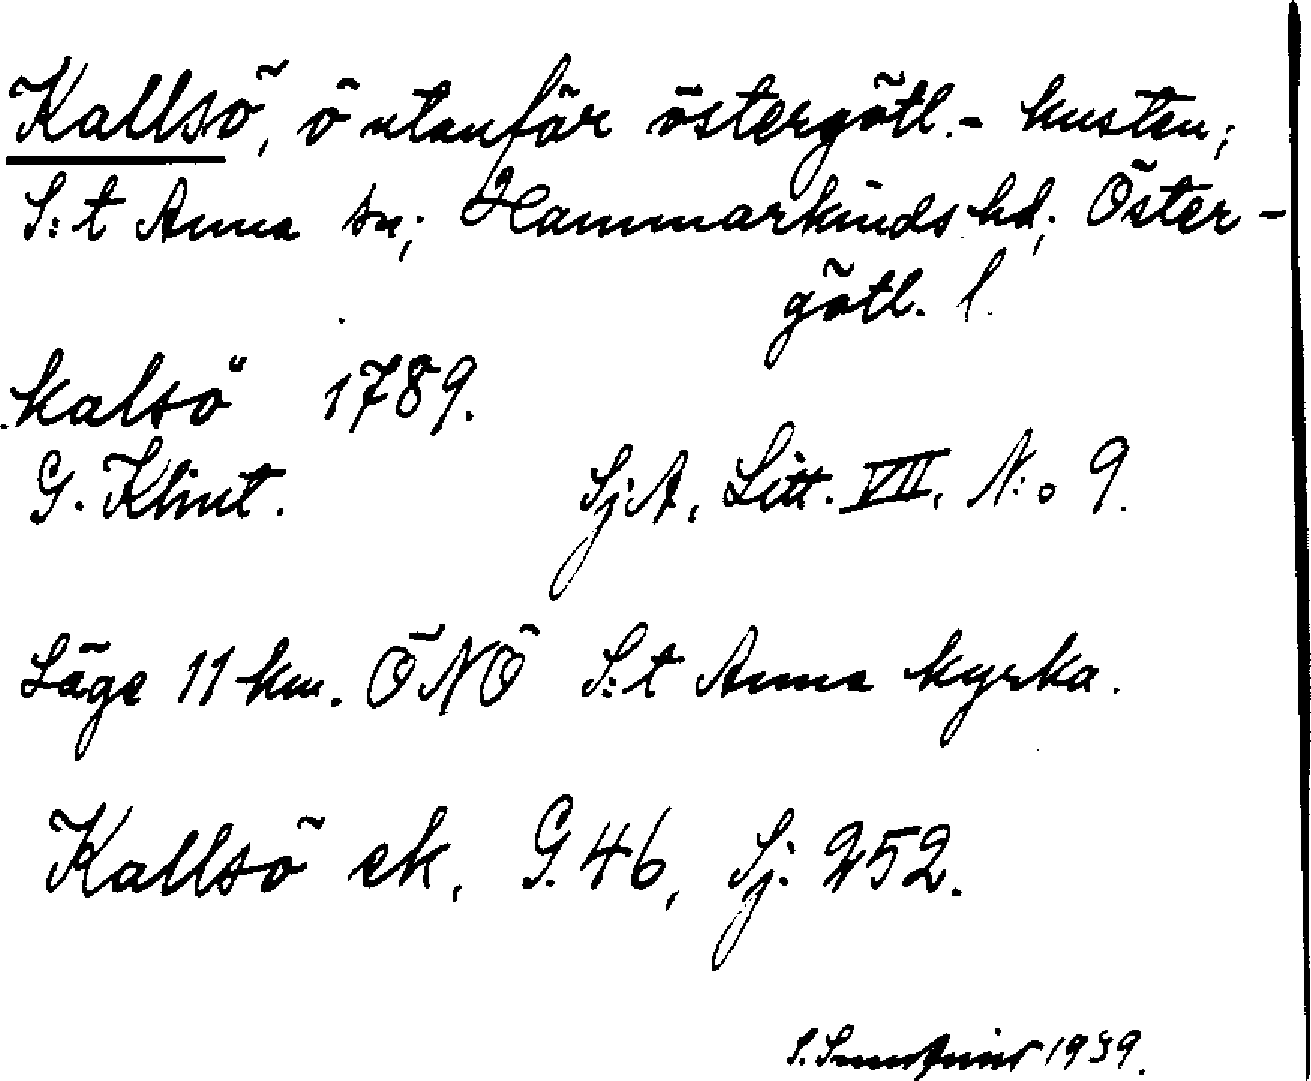 Kallsö, ö utanför östergötl.- kusten;
S:t Anna sn; Hammarkinds hd; Öster-
götl. l.
Kalsö 1789.
G. Klint. SjA, Litt. VII, N:o 9.
Läge 11 km. ÖNÖ S:t Anna kyrka.
Kallsö ek, G. 46, Sj. 252.
S. 1939.